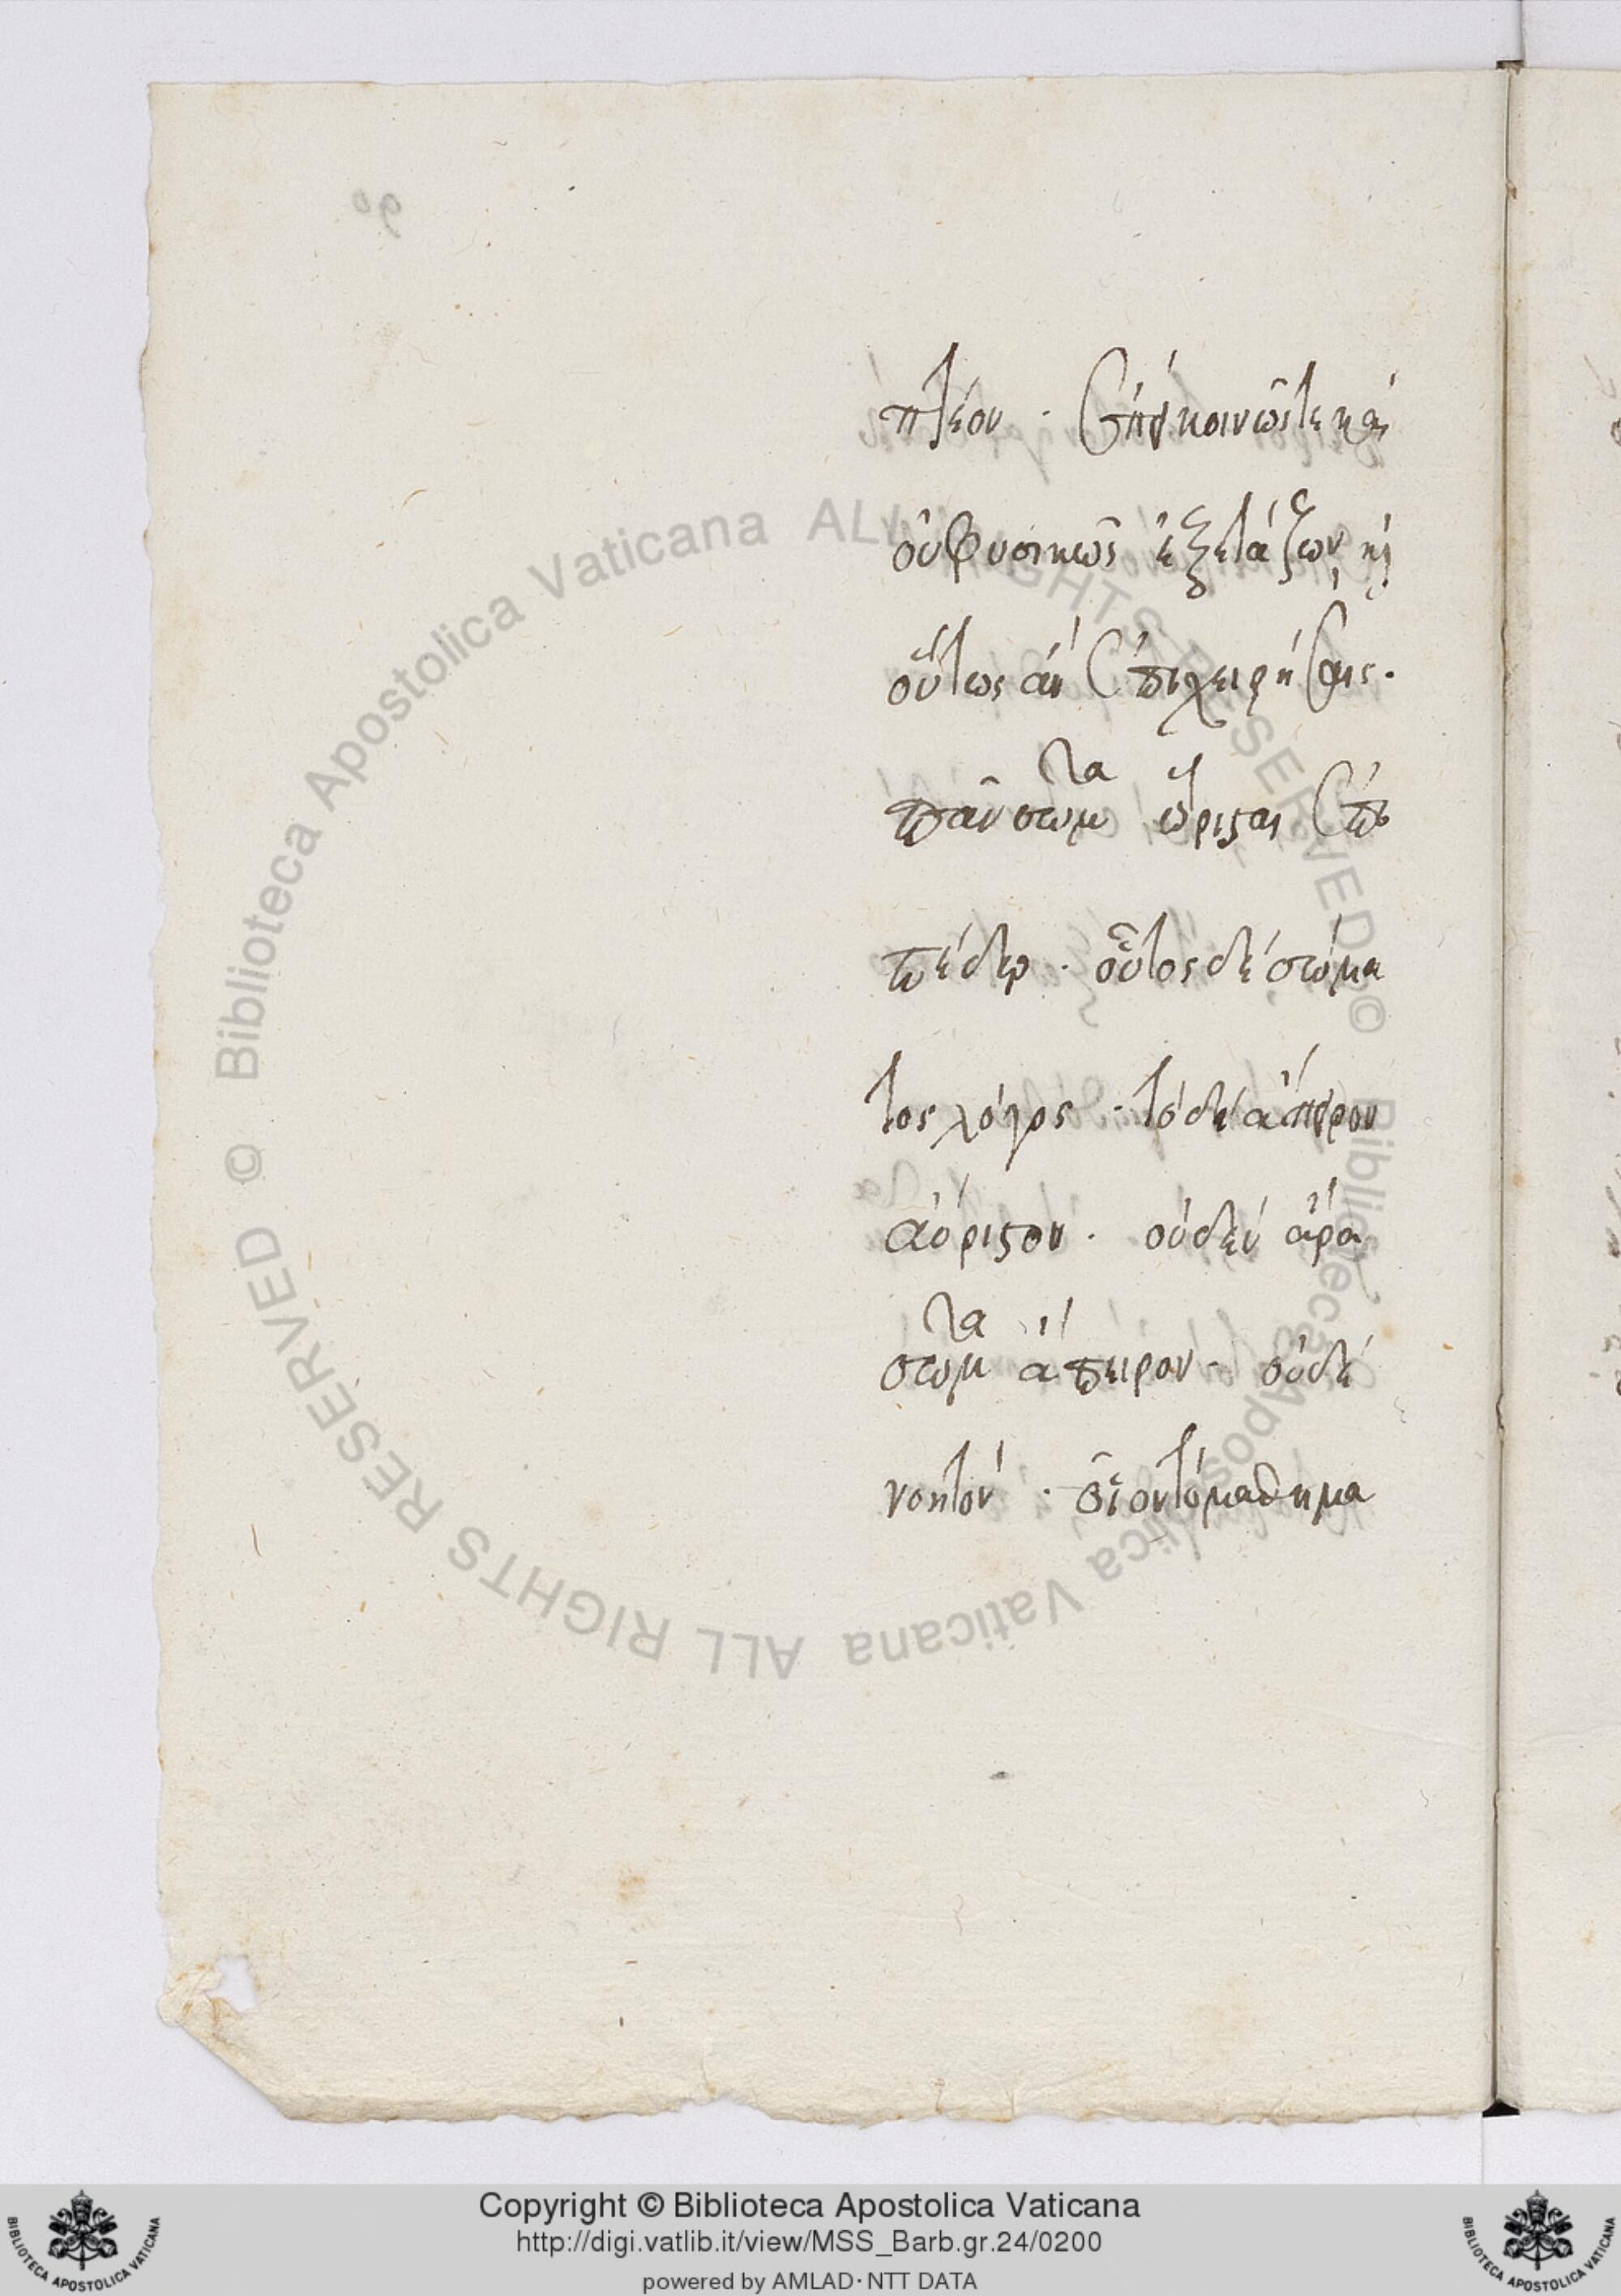 πτέον · ἐπεὶ κοινῶς τε καὶ
οὐ φυσικῶς ἐξετάζων καὶ
οὕτως ἂν ἐπιχειρήσαις ·
πᾶν σῶμα ὥρισται ἐπι
πέδῳ · οὗτος δὲ σώμα
τος λόγος · τὸ δὲ ἄπειρον
ἀόριστον · οὐδὲν ἄρα
σῶμα ἄπειρον · οὐδὲ
νοητόν · οἷον τὸ μαθημα
© Biblioteca Apostolica Vaticana ALL RIGHTS RESERVED © Biblioteca Apostolica Vaticana ALL RIGHTS RESERVED
Copyright © Biblioteca Apostolica Vaticana
http://digi.vatlib.it/view/MSS_Barb.gr.24/0200
powered by AMLAD·NTT DATA
BIBLIOTECA APOSTOLICA VATICANA
BIBLIOTECA APOSTOLICA VATICANA